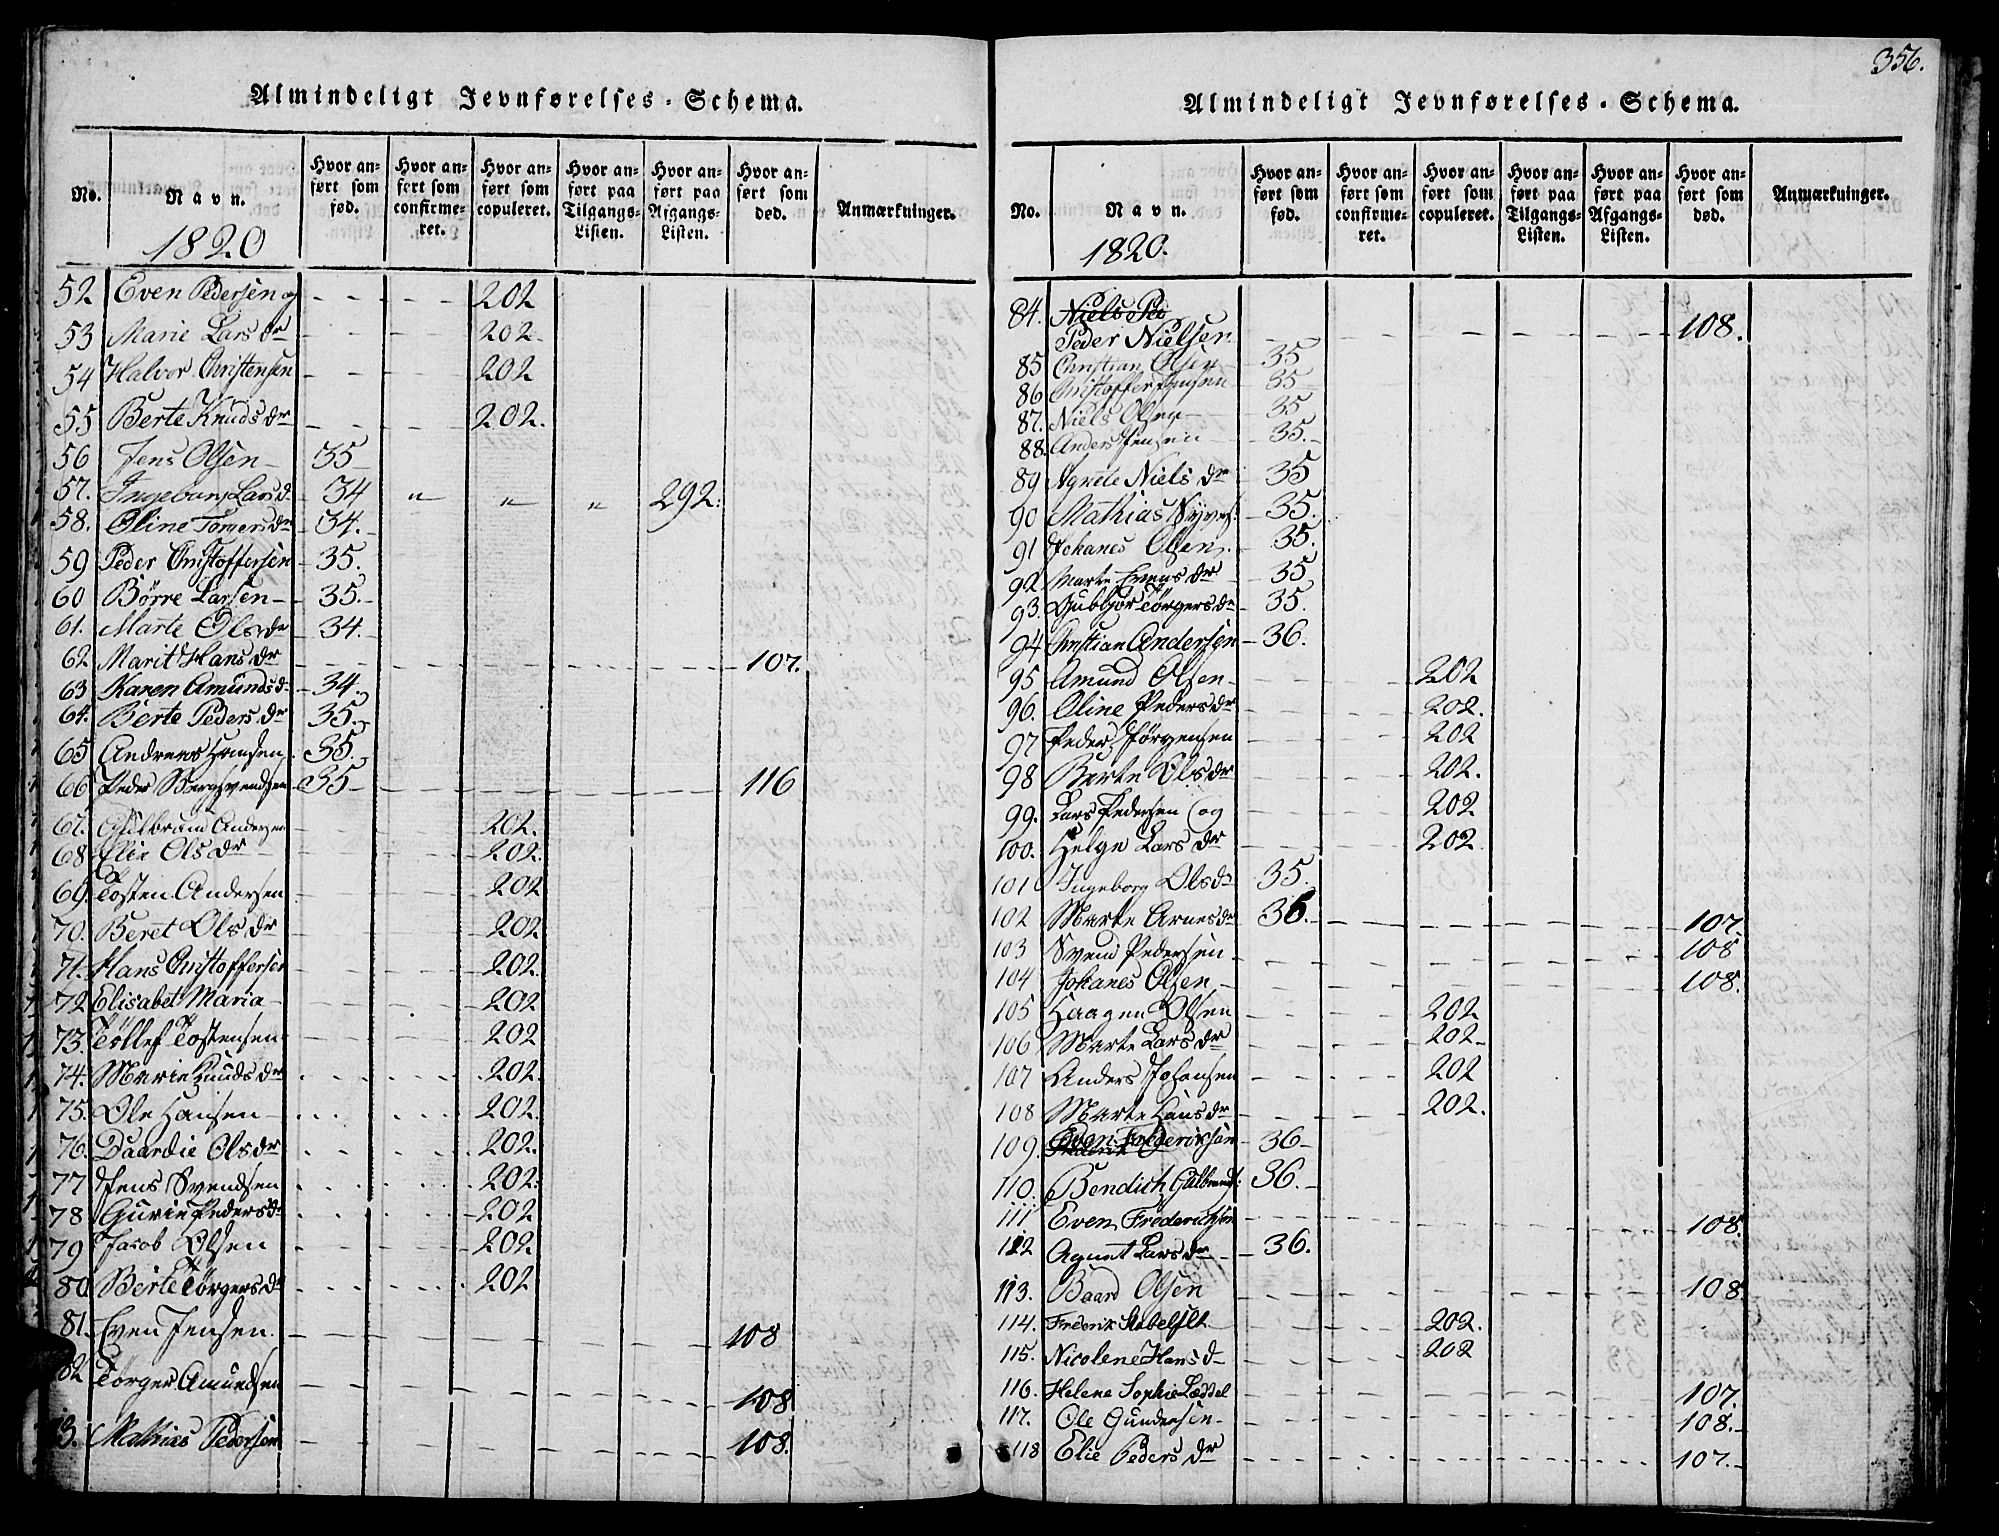 356.
Almindeligt Jevnførelses-Schema.
No.
Navn.
1820
Hvor anført som fød.
Hvor anført som confirmeret.
Hvor anført som copuleret.
Hvor anført paa Tilgangs-Listen.
Hvor anført paa Afgangs-Listen.
Hvor anført som død.
Anmærkninger.
52 Even Pedersen og - - - - 202
53 Marie Lars dr - - - 202
54 Halvor Christensen - - - 202
55 Berte Knuds dr - - - 202.
56 Jens Olsen - 35
57. Ingeborg Lars d. - 34 " " " 292.
58. Oline Torgers dr - 34.
59 Peder Christoffersen 35.
60 Börre Larsen - 35.
61. Marte Ols dr - 34.
62 Marit Hans dr - - - - 107.
63 Karen Amunds d. - 34.
64. Berte Peders dr 35.
65 Andreas Hansen 35.
66 Peder Bergsvendsen 35 - - - - 116
67. Gulbrand Andersen - - 202.
68 Elie Ols dr - - - 202.
69. Tosten Andersen - - - 202
70. Beret Ols dr - - - 202
71. Hans Christoffersen - - - 202
72 Elisabet Maria - - - 202
73. Töllef Tostensen - - - 202
74. Marie Knuds dr - - - 202.
75. Ole Hansen - - - 202.
76. Baardie Ols dr - - - 202.
77 Jens Svendsen - - - 202.
78 Gurie Peders d. - - - 202
79 Jacob Olsen - - - 202
80 Berte Törgers d. - - - 202
81. Even Jensen. - - - - 108
82 Törger Amundsen - - - - 108
3. Mathias Pedersen - - - - 108.
Almindeligt Jevnførelses-Schema.
No.
Navn.
1820.
Hvor anført som fød.
Hvor anført som confirmeret.
Hvor anført som copuleret.
Hvor anført paa Tilgangs-Listen.
Hvor anført paa Afgangs-Listen.
Hvor anført som død.
Anmærkninger.
84. Niels Pe
Peder Nielsen - - - - 108.
85 Christian Olsen 35
86 Christoffer Jensen 35
87. Niels Olsen - 35
88. Anders Jensen - 35.
89 Agnete Niels dr 35
90 Mathias Syvers. 35.
91 Johanes Olsen. - 35.
92. Marte Evens dr 35
93. Gubbjör Törgers dr - 35.
94 Christian Andersen - 36.
95 Amund Olsen - - - 202
96. Oline Peders dr - - - 202.
97 Peder Jörgensen - - - 202
98 Berte Ols dr - - - 202.
99. Lars Pedersen (og - - - 202
100. Helge Lars dr - - - 202
101 Ingeborg Ols d. 35.
102 Marte Arnes dr 36. - - - - 107.
103 Svend Pedersen - - - - 108
104 Johanes Olsen - - - - 108.
105 Haagen Olsen - - - 202
106 Marte Lars dr - - - 202.
107 Anders Johansen - - - 202
108 Marte Hans dr - - - 202.
109. Even Frederiksen - 36 -
110. Bendich Gulbrands. 36. -
111 Even Frederichsen - - - - 108.
112 Agnet Lars dr - 36.
113. Baard Olsen - - - - 108.
114. Frederik Stabelfelt - - - 202.
115. Nicolene Hans d. - - - 202
116. Helene Sophie Læddel - - - - 107.
117. Ole Gundersen - - - - 108. -
118 Elie Peders dr - - - - 107. -